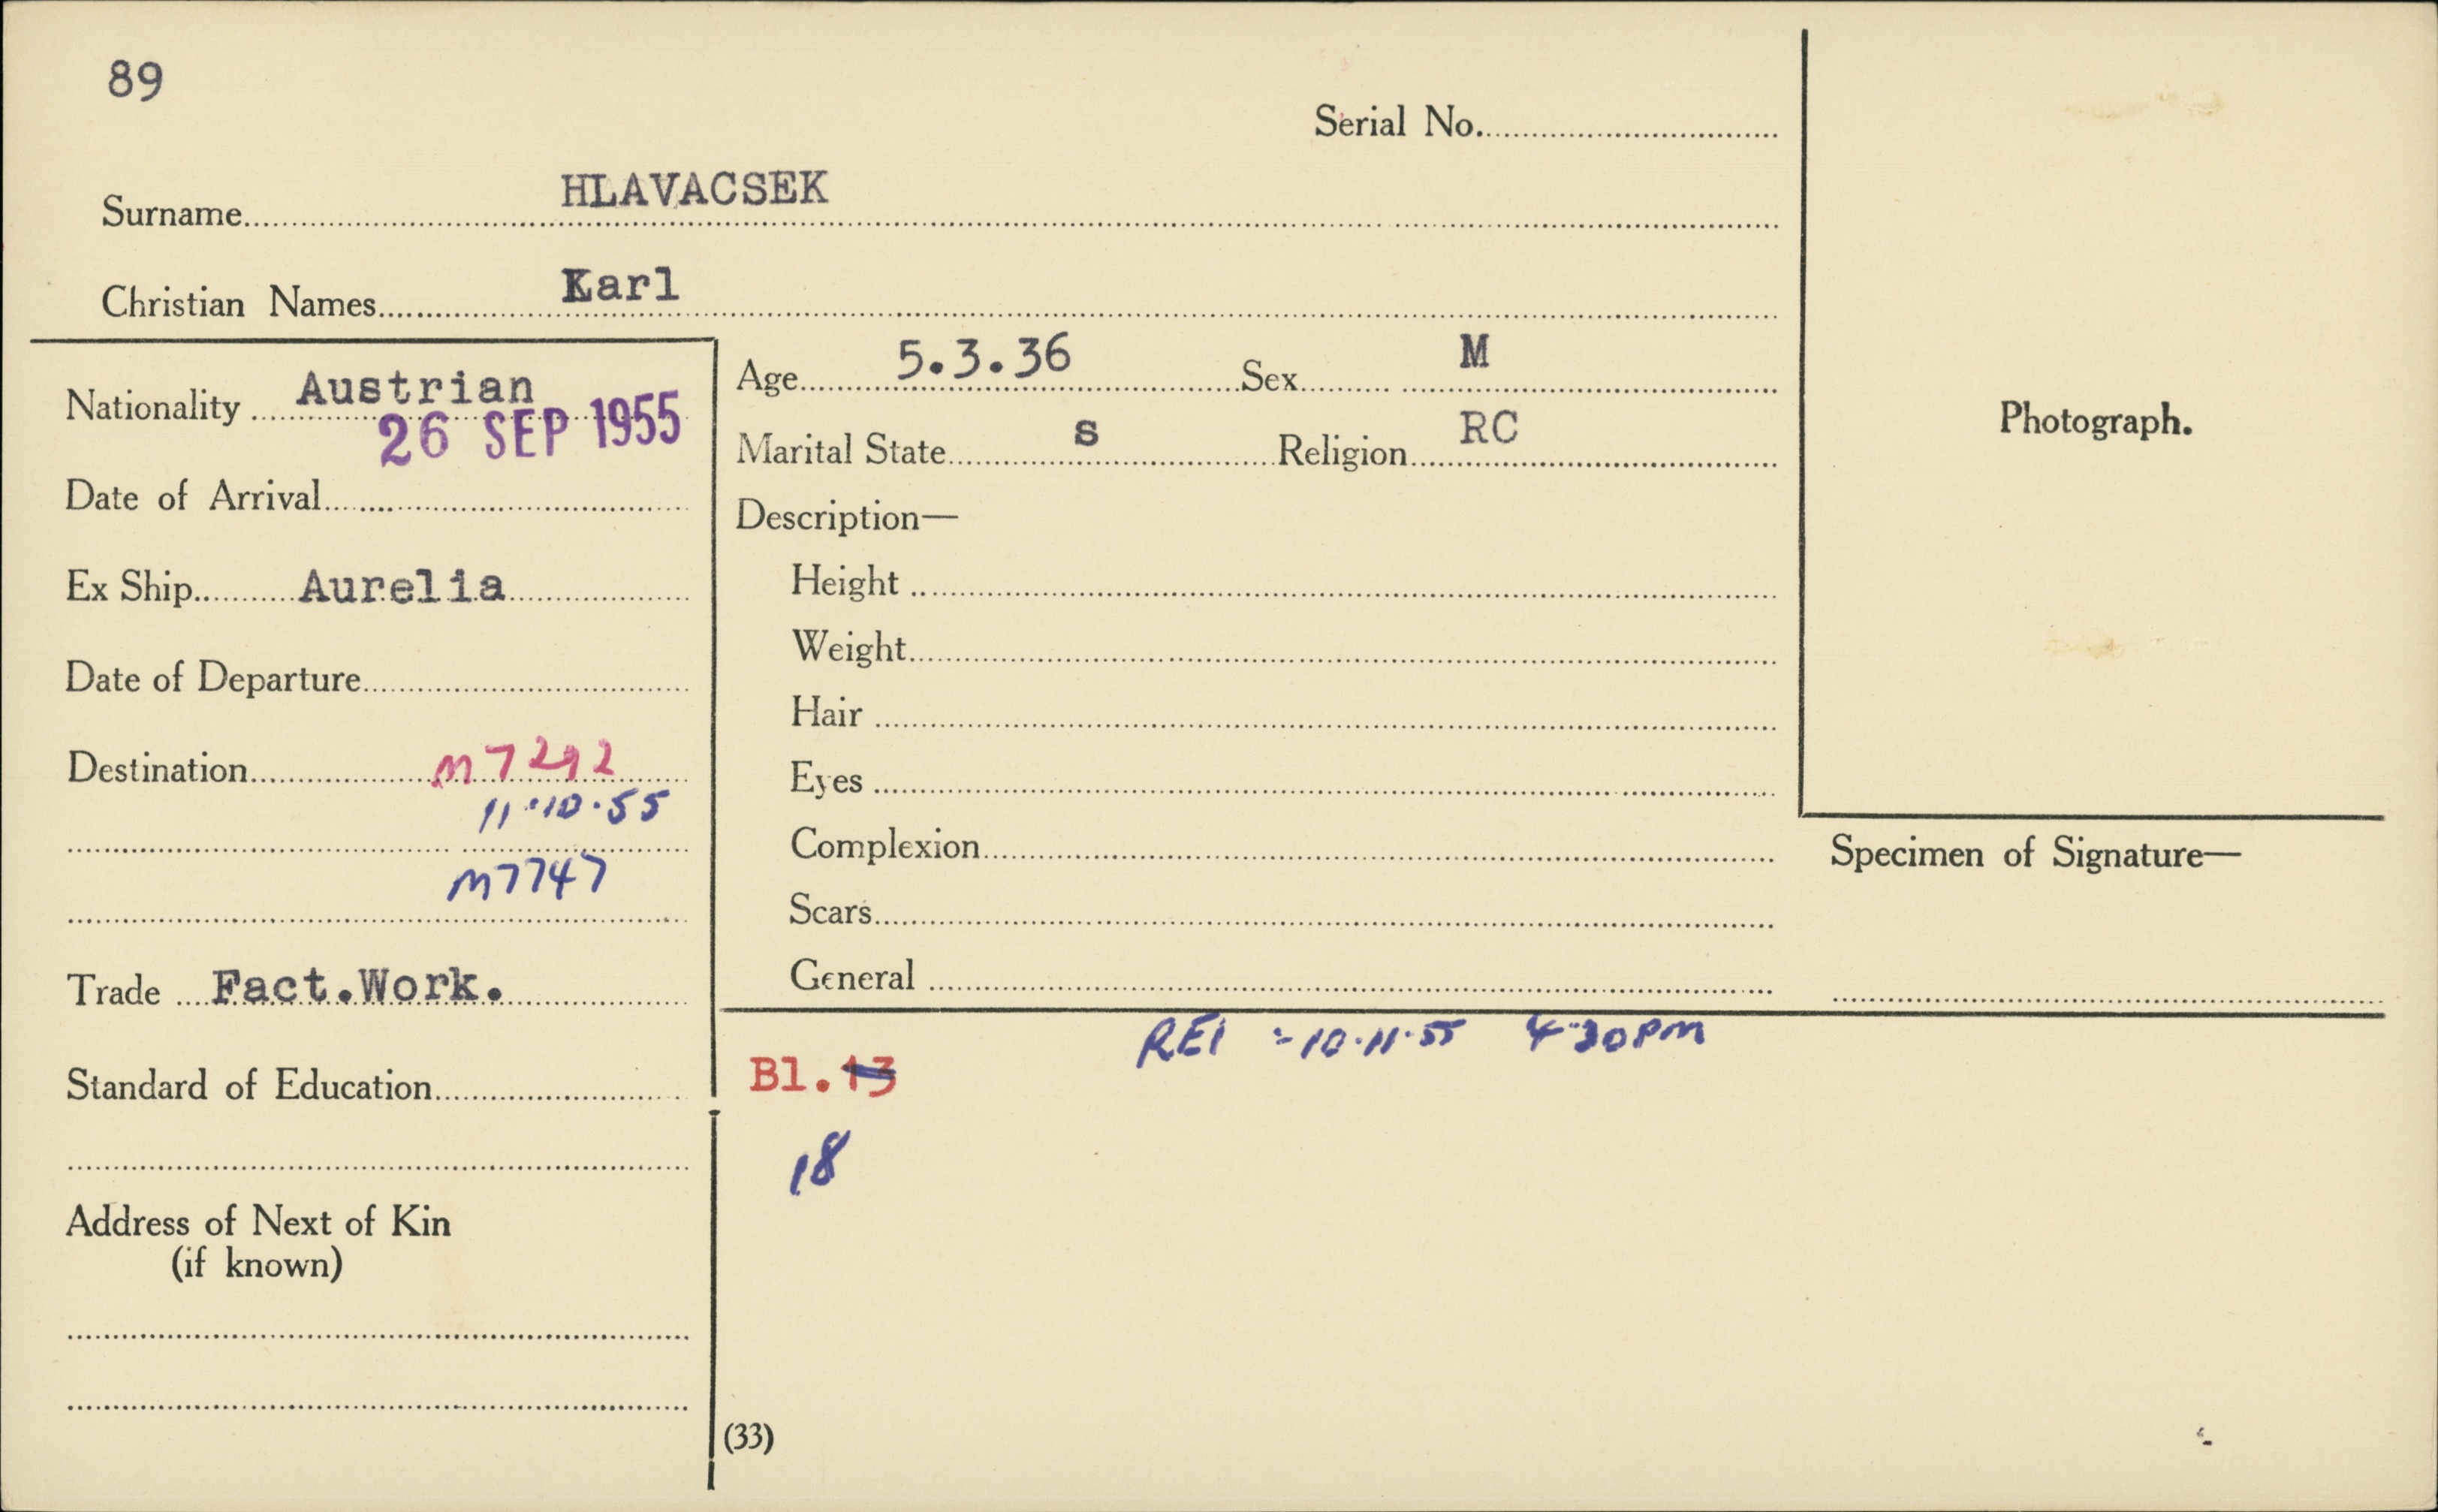 89
Serial No.
Surname HLAVACSEK
Christian Names Karl
Nationality Austrian
26 SEP 1955
Date of Arrival
Ex Ship Aurelia
Date of Departure
Destination M7292
11.10.55
M7747
Trade Fact.Work.
Standard of Education
Address of Next of Kin
(if known)
Age 5.3.36 Sex M
Marital State s Religion RC
Description—
Height
Weight
Hair
Eyes
Complexion
Scars
General
REI :- 10.11.55 4.30PM
Bl.13
18
(33)
Photograph.
Specimen of Signature—